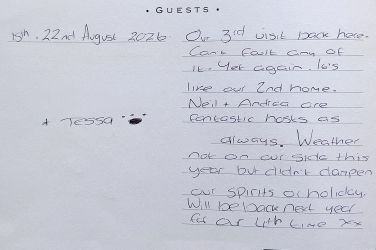 • GUESTS •
15th - 22nd August 2026
Our 3rd visit back here.
Can't fault any of
it. Yet again. It's
like our 2nd home.
Neil + Andrea are
+ TESSA
fantastic hosts as
always. Weather
not on our side this
year but didn't dampen
our spirits or holiday.
Will be back next year
for our 4th time xx